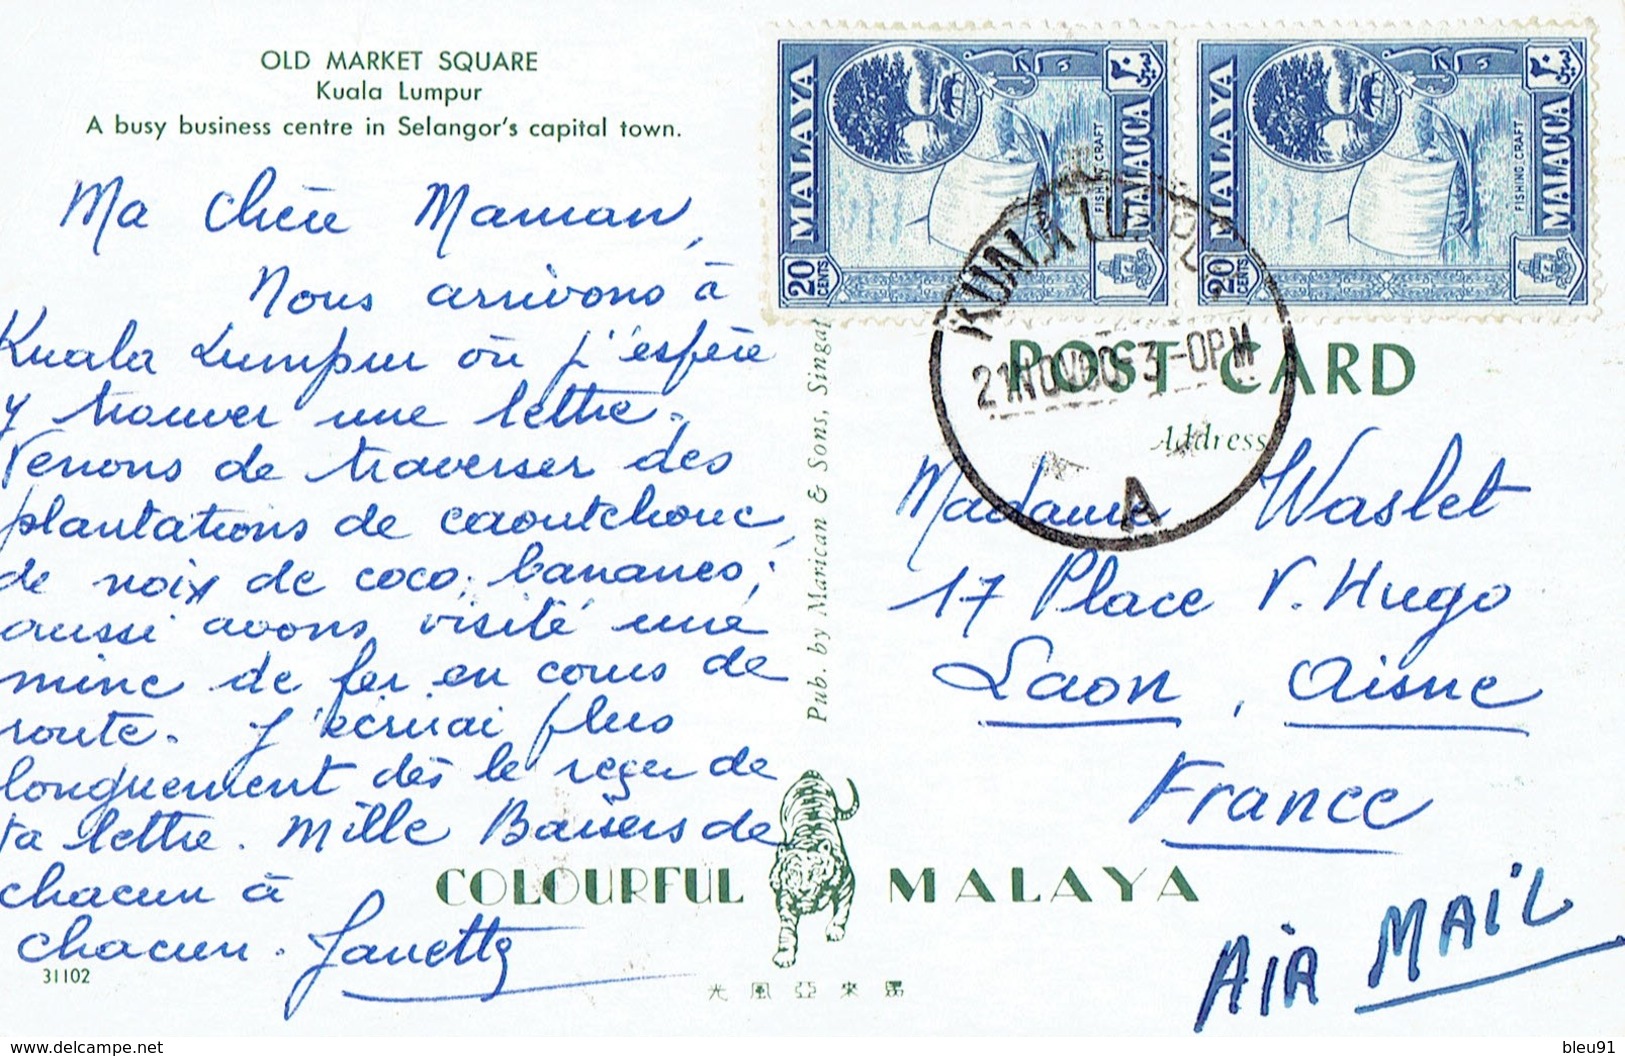 OLD MARKET SQUARE
Kuala Lumpur
A busy business centre in Selangor's capital town.
Ma Chère Maman,
Nous arrivons à
Kuala Lumpur où j'espère
y trouver une lettre.
Venons de traverser des
plantations de caoutchouc,
de noix de coco, bananes;
aussi avons visité une
mine de fer en cours de
route. J'écrirai plus
longuement dès le reçu de
ta lettre. Mille Baisers de
chacun à
chacun. Janette
31102
Pub. by Marican & Sons, Singa
MALAYA
MALACCA
20
CENTS
FISHING CRAFT
٢٠
سين
MALAYA
MALACCA
20
CENTS
FISHING CRAFT
٢٠
سين
KUALA LUMPUR
21 NOV 60 3-0PM
A
POST CARD
Address
Madame Waslet
17 Place V. Hugo
Laon, Aisne
France
COLOURFUL MALAYA
光風亞來馬
AIR MAIL
www.delcampe.net
bleu91